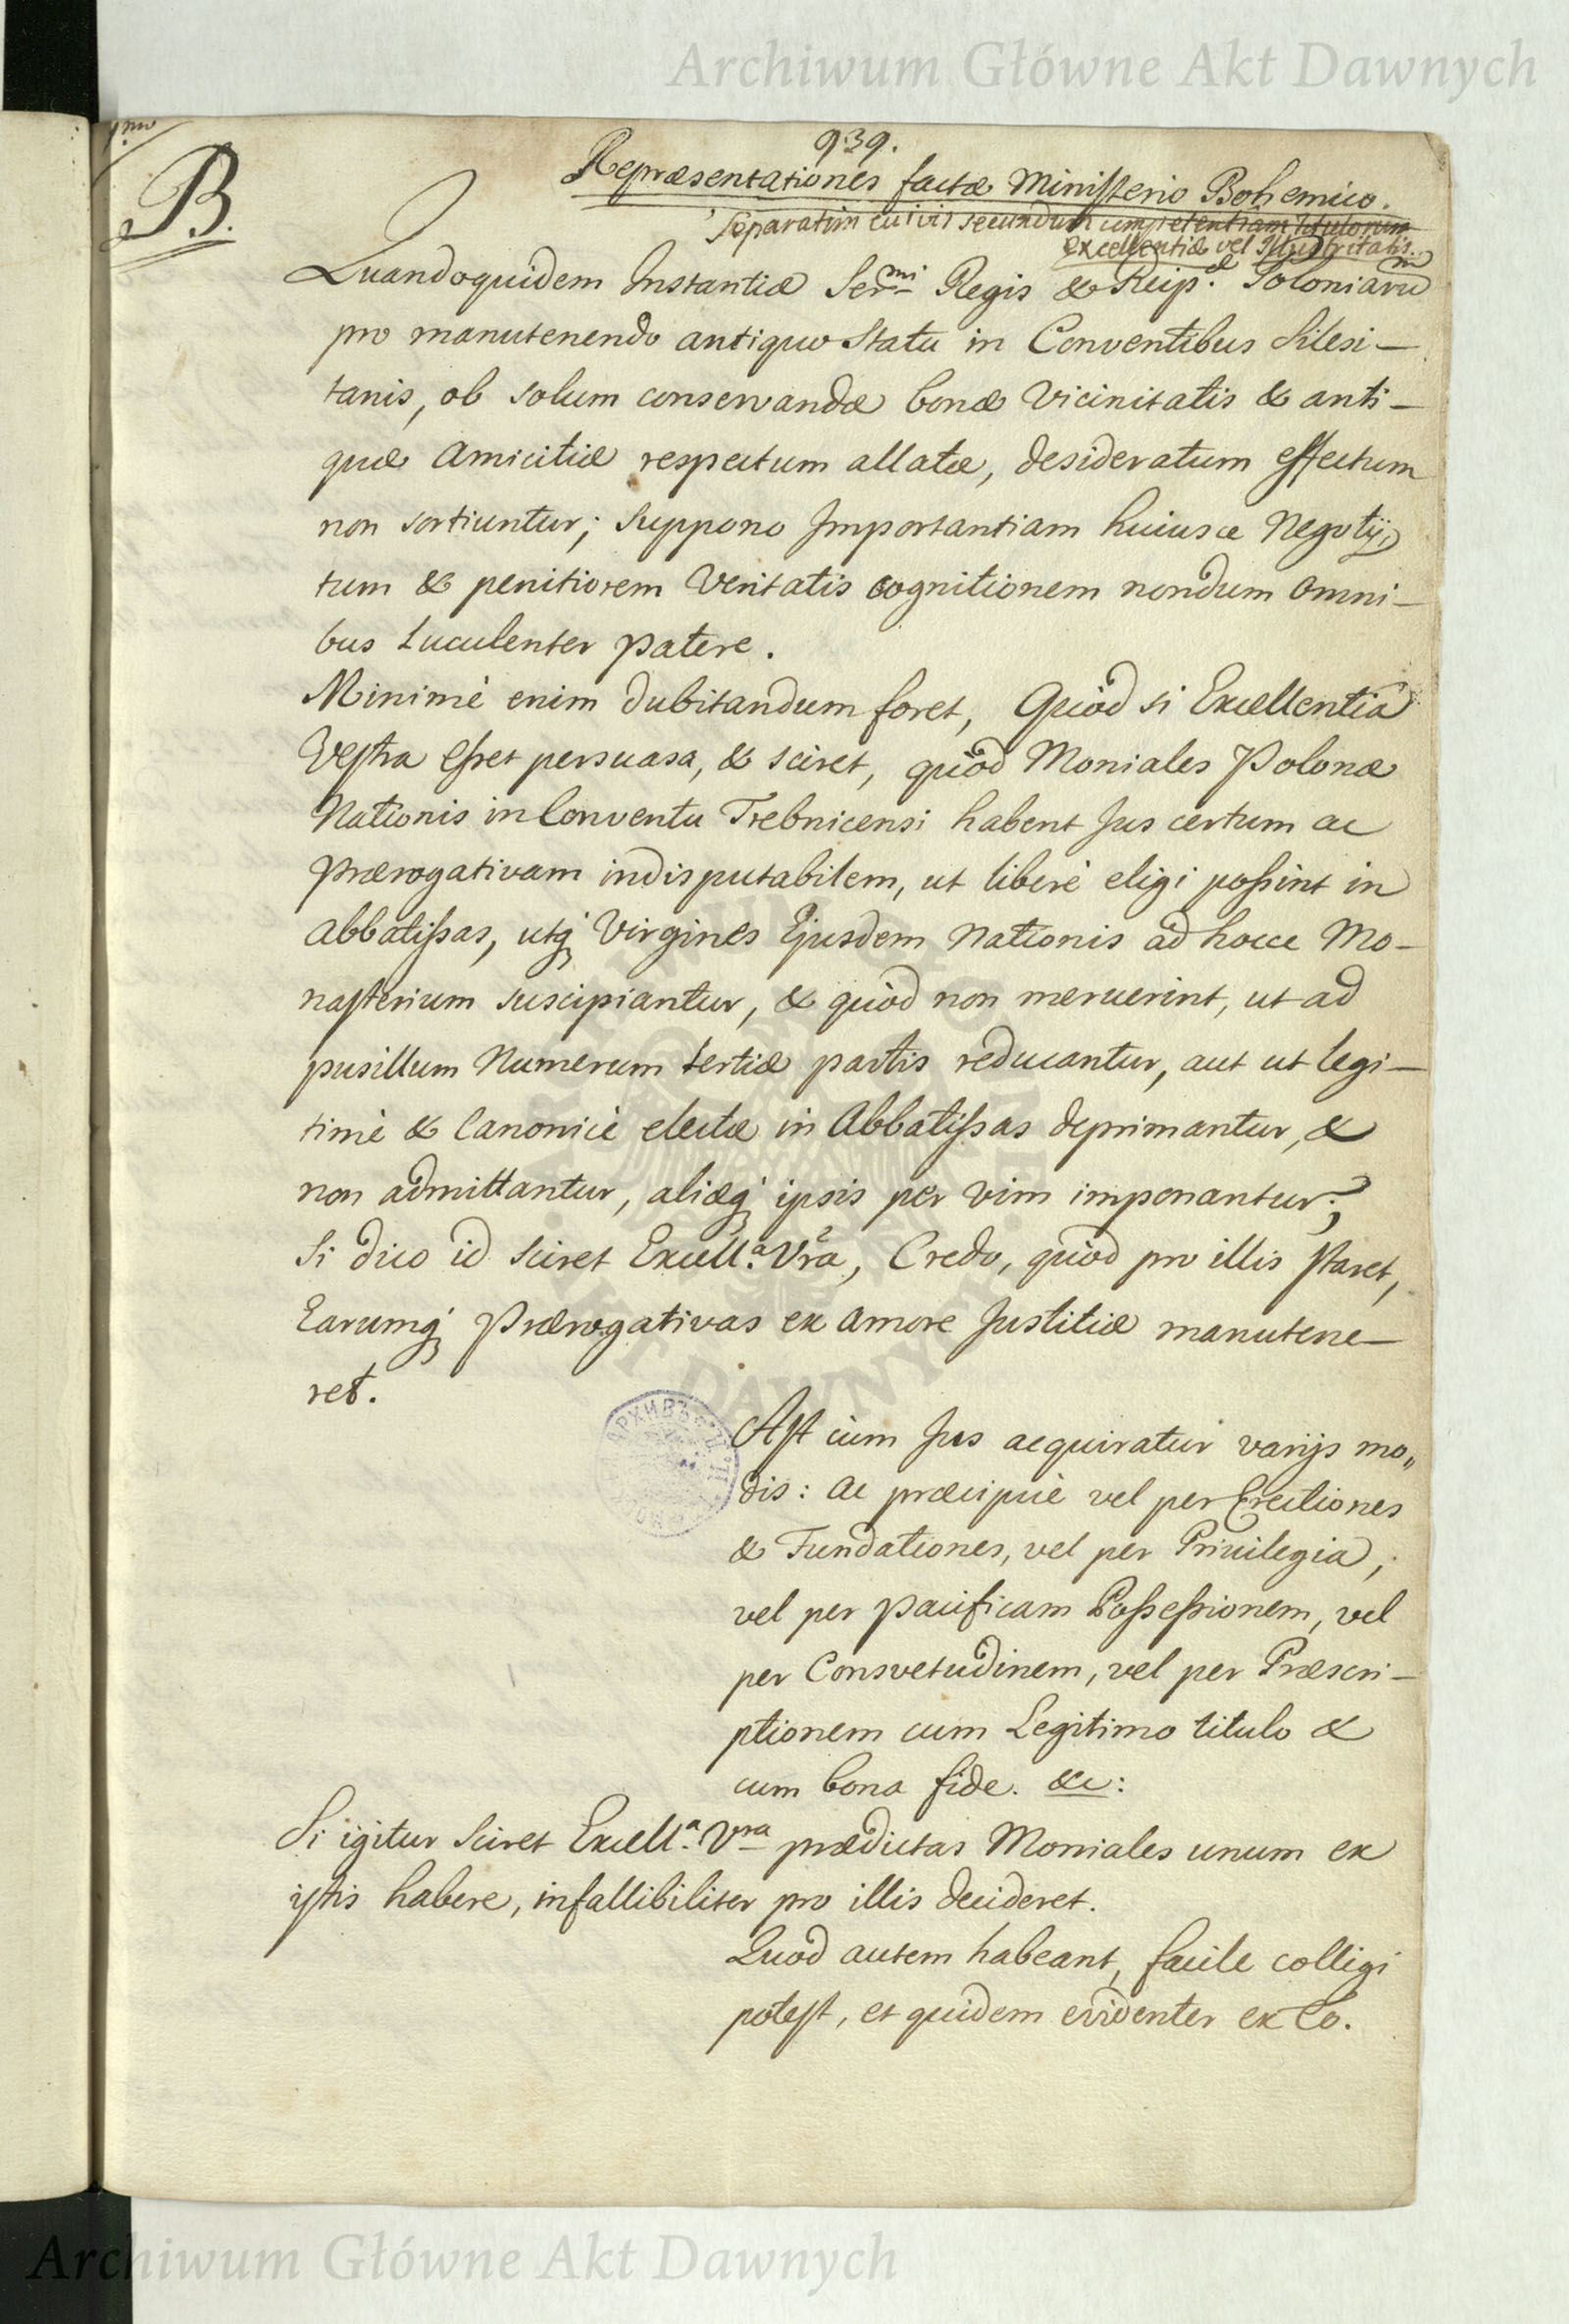 Archiwum Główne Akt Dawnych
939.
B.
Repræsentationes factæ Ministerio Bohemico.
Separatim cuivis secundum competentiam titulorum
excellentiæ vel Illustritatis.
Quandoquidem Instantiæ Ser.mi Regis & Reip.æ Poloniarū
pro manutenendo antiquo Statu in Conventibus Silesi-
tanis, ob solum conservandæ bonæ Vicinitatis & anti-
quæ Amicitiæ respectum allatæ, desideratum effectum
non sortiuntur; suppono Importantiam huiusce Negotij,
tum & penitiorem Veritatis cognitionem nondum omni-
bus luculenter patere.
Minimè enim dubitandum foret, Quòd si Excellentia
Vestra esset persuasa, & sciret, quòd Moniales Polonæ
Nationis in Conventu Trebnicensi habent Jus certum ac
Prærogativam indisputabilem, ut liberè eligi possint in
Abbatissas, utq; Virgines Ejusdem Nationis ad hocce Mo-
nasterium suscipiantur, & quòd non meruerint, ut ad
pusillum Numerum tertiæ partis reducantur, aut ut legi-
timè & Canonicè electæ in Abbatissas deprimantur, &
non admittantur, aliæq; ipsis per vim imponantur;
Si dico id sciret Excell.a Vra, Credo, quòd pro illis staret,
Earumq; Prærogativas ex amore Justitiæ manutene-
ret.
Ast cùm Jus acquiratur varijs mo„
dis: ac præcipuè vel per Erectiones
& Fundationes, vel per Privilegia,
vel per pacificam Possessionem, vel
per Consvetudinem, vel per Præscri-
ptionem cum Legitimo titulo &
cum bona fide. &c:
Si igitur sciret Excell.a Vra prædictas Moniales unum ex
istis habere, infallibiliter pro illis decideret.
Quod autem habeant, facile colligi
potest, et quidem evidenter ex Eo.
Archiwum Główne Akt Dawnych